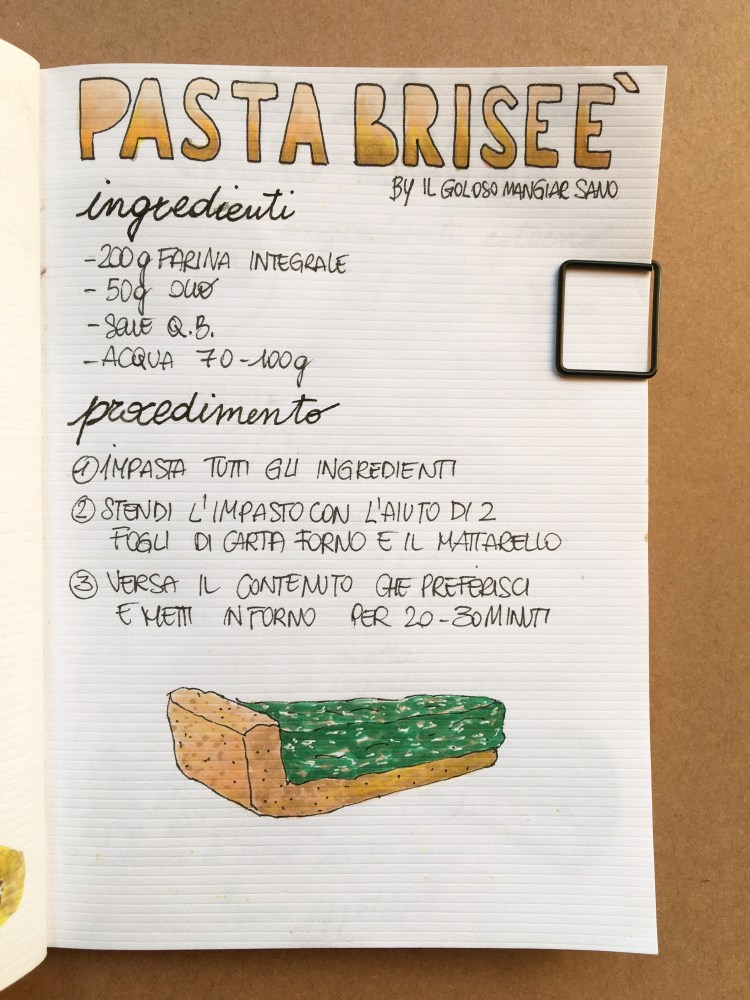 PASTA BRISEÈ
BY IL GOLOSO MANGIAR SANO
ingredienti
- 200g FARINA INTEGRALE
- 50g OLIO
- SALE Q.B.
- ACQUA 70-100g
procedimento
① IMPASTA TUTTI GLI INGREDIENTI
② STENDI L'IMPASTO CON L'AIUTO DI 2
FOGLI DI CARTA FORNO E IL MATTARELLO
③ VERSA IL CONTENUTO CHE PREFERISCI
E METTI IN FORNO PER 20-30 MINUTI